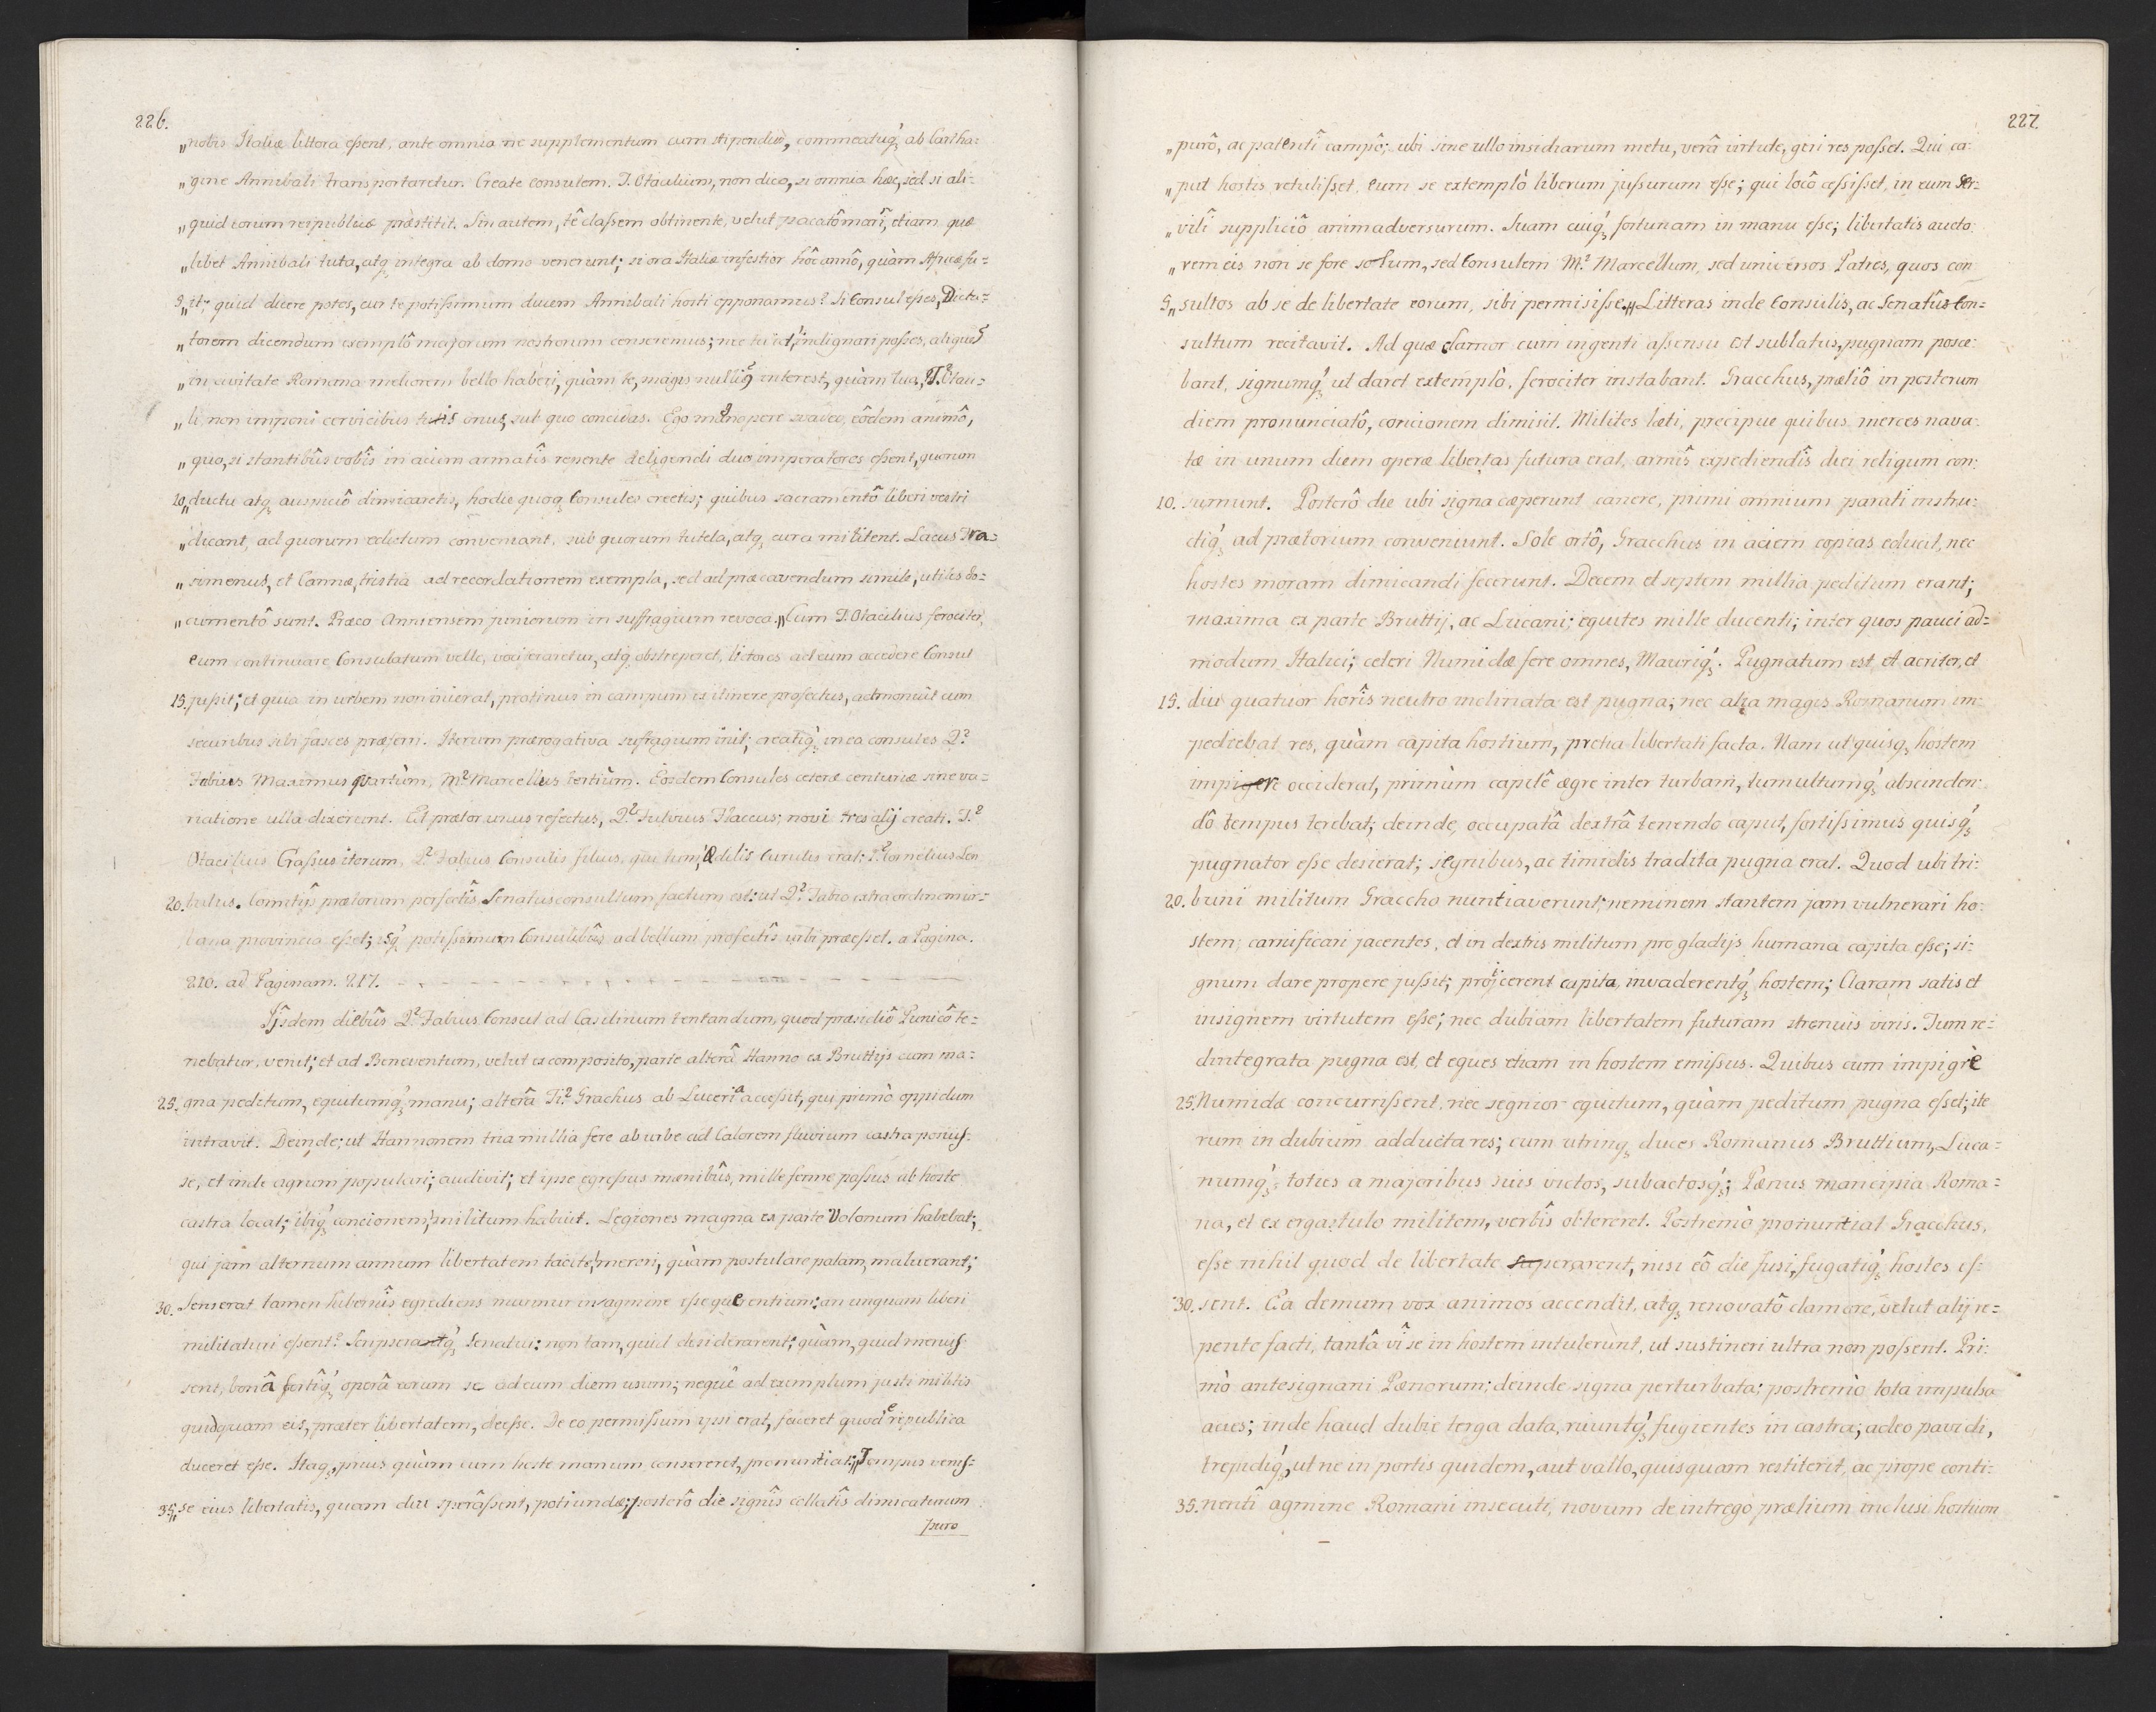 226.
„nobis Italiæ littora eſsent, ante omnia ne supplementum cum stipendio, commeatuq́ꝫ ab Cartha=
„gine Annibali transportaretur. Create Consulem. T. Otacilium, non dico, si omnia hæc, sed si ali=
„quid eorum reipublicæ præstitit. Sin autem, tê claſsem obtinente, velut pacatô marî, etiam quæ
„libet Annibali tuta, atqꝫ integra ab domo venerunt; si ora Italiæ infestior hôc annô, quàm Africæ fu=
5„it; quid dicere potes, cur te potiſsimum ducem Annibali hosti opponamus? Si Consul eſses, Dicta=
„torem dicendum exemplô majorum nostrorum censeremus; nec tu id, indignari poſses, aliquẽ
„in civitate Romana meliorem bello haberi, quàm te, magis nulliꝰ interest, quàm tua, T. Otaci=
„li, non imponi cervicibus tuis onus, sub quo concidas. Ego magnopere svadeo, eôdem animô,
„quo, si stantibûs vobîs in aciem armatîs repente deligendi duo imperatores eſsent, quorum
10„ductu atqꝫ auspiciô dimicaretis, hodie quoqꝫ Consules creetis; quibus sacramentô liberi vestri
„dicant, ad quorum edictum conveniant, sub quorum tutela, atqꝫ cura militent. Lacus Tra=
„simenus, et Cannæ, tristia ad recordationem exempla, sed ad præcavendum simile, utiles do=
„cumentô sunt. Præco Anniensem juniorum in suffragium revoca.„ Cum T. Otacilius ferociter,
eum continuare Consulatum velle, vociferaretur, atqꝫ obstreperet, lictores ad eum accedere Consul
15. juſsit; et quia in urbem non inierat, protinus in campum ex itinere profectus, admonuit cum
securibus sibi fasces præferri. Iterum prærogativa suffragium init; creatiq́ꝫ in ea consules Q.
Fabius Maximus quartùm, M. Marcellus tertiùm. Eosdem Consules ceteræ centuriæ sine va=
riatione ulla dixerunt. Et prætor unus refectus, Q. Fulvius Flaccus; novi tres alij creati. T.
Otacilius Craſsus iterum, Q. Fabius Consulis filius, qui tum, Ædilis Curulis erat; P. Cornelius Len
20. tulus. Comitijs prætorum perfectîs, Senatusconsultum factum est: ut Q. Fulvio extra ordinem ur=
bana provincia eſset; isq́ꝫ potiſsimum Consulibûs ad bellum profectîs urbi præeſset. a Pagina.
210. ad Paginam. 217.
Ijsdem diebûs Q. Fabius Consul ad Casilinum tentandum, quod præsidiô Punicô te=
nebatur, venit; et ad Beneventum, velut ex composito, parte alterâ Hanno ex Bruttijs cum ma=
25. gna peditum, equitumq́ꝫ manu; alterâ Ti. Grachus ab Luceria acceſsit, qui primò oppidum
intravit. Deinde; ut Hannonem tria millia fere ab urbe ad Calorem fluvium castra posuiſ=
se, et inde agrum populari; audivit; et ipse egreſsus mœnibûs, mille ferme paſsus ab hoste
castra locat; ibiq́ꝫ concionem, militum habuit. Legiones magna ex parte Volonum habebat;
qui jam alterum annum libertatem tacite, mereri, quàm postulare palam, maluerant;
30. Senserat tamen hibernîs egrediens murmur in agmine eſse querentium: an unquam liberi
militaturi eſsent? Scripseratq́ꝫ Senatui: non tam, quid desiderarent; quàm, quid meruiſ
sent, bonâ fortîq́ꝫ operâ eorum se ad eum diem usum; neque ad exemplum justi militis
quidquam eis, præter libertatem, deeſse. De eo permiſsum ipsi erat, faceret quod e republica
duceret eſse. Itaqꝫ, prius quàm cum hoste manum consereret, pronuntiat; „Tempus veniſ=
35.„se eius libertatis, quam diu sperâſsent, potiundæ; posterô die signîs collatîs dimicaturum
puro
227.
„purô, ac patentî campô; ubi sine ullo insidiarum metu, verâ virtute, geri res poſset. Qui ca=
„put hostis retuliſset, eum se extemplò liberum juſsurum eſse; qui locô ceſsiſset, in eum ser=
„vilî suppliciô animadversurum. Suam cuiq́ꝫ fortunam in manu eſse; libertatis aucto
„rem eis non se fore solum, sed Consulem M. Marcellum, sed universos Patres, quos con
5„sultos ab se de libertate eorum, sibi permisiſse.„ Litteras inde Consulis, ac Senatûs Con=
sultum recitavit. Ad quæ clamor cum ingenti aſsensu est sublatus, pugnam posce=
bant, signumq́ꝫ ut daret extemplò, ferociter instabant. Gracchus, præliô in posterum
diem pronunciatô, concionem dimisit. Milites læti, precipue quibus merces nava=
tæ in unum diem operæ libertas futura erat, armîs expediendîs diei reliqum con=
10. sumunt. Posterô die ubi signa cæperunt canere, primi omnium parati instru=
ctiq́ꝫ ad prætorium conveniunt. Sole ortô, Gracchus in aciem copias educit, nec
hostes moram dimicandi fecerunt. Decem et septem millia peditum erant;
maxima ex parte Bruttij, ac Lucani; equites mille ducenti; inter quos pauci ad=
modum Italici; ceteri Numidæ fere omnes, Mauriq́ꝫ. Pugnatum est, et acriter, et
15. diu quatuor horîs neutro inclinata est pugna; nec alia magis Romanum im=
pediebat res, quàm capita hostium, pretia libertati facta. Nam ut quisqꝫ hostem
impigre occiderat, primùm capitê ægre inter turbam, tumultumq́ꝫ abscinden=
dô tempus terebat; deinde, occupatâ dextrâ tenendo caput, fortiſsimus quisq́ꝫ
pugnator eſse desierat; segnibus, ac timidis tradita pugna erat. Quod ubi tri=
20. buni militum Graccho nuntiaverunt; neminem stantem jam vulnerari ho=
stem, carnificari jacentes, et in dextris militum pro gladijs humana capita eſse; si=
gnum dare propere juſsit; projicerent capita, invaderentq́ꝫ hostem; Claram satis et
insignem virtutem eſse; nec dubiam libertatem futuram strenuis viris. Tum re=
dintegrata pugna est, et eques etiam in hostem emiſsus. Quibus cum impigrè
25. Numidæ concurriſsent, nec segnior equitum, quàm peditum pugna eſset; ite
rum in dubium adducta res; cum utrinqꝫ duces Romanus Bruttium, Luca=
numq́ꝫ, toties a majoribus suis victos, subactosq́ꝫ; Pænus mancipia Roma=
na, et ex ergastulo militem, verbîs obtereret. Postremò pronuntiat Gracchus,
eſse nihil quod de libertate sperarent, nisi eô die fusi, fugatiq́ꝫ hostes eſ=
30. sent. Ea demum vox animos accendit, atqꝫ renovatô clamore, velut alij re=
pente facti, tantâ vî se in hostem intulerunt, ut sustineri ultra non poſsent. Pri=
mò antesignani Pænorum; deinde signa perturbata; postremò tota impulsa
acies; inde haud dubie terga data, ruuntq́ꝫ fugientes in castra; adeo pavidi,
trepidiq́ꝫ, ut ne in portis quidem, aut vallo, quisquam restiterit, ac prope conti=
35. nentî agmine Romani insecuti, novum de intrego prælium inclusi hostium